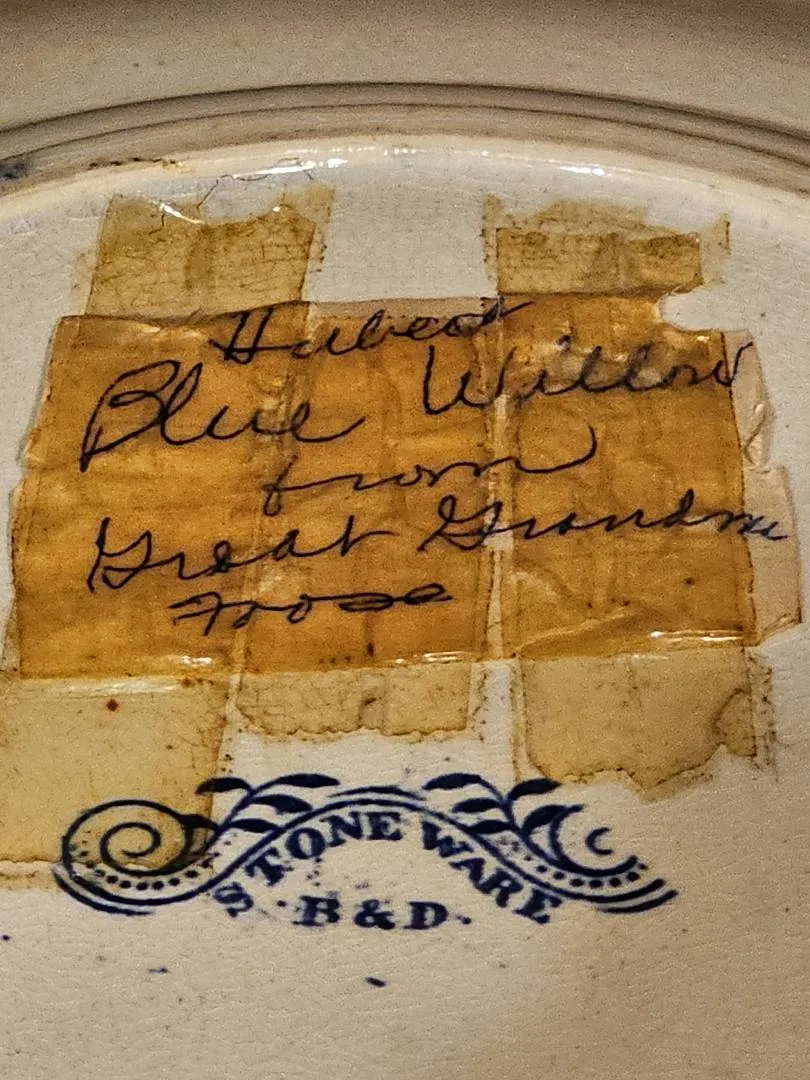 Hubert
Blue Willow
from
Great Grandma
STONE WARE
B & D.